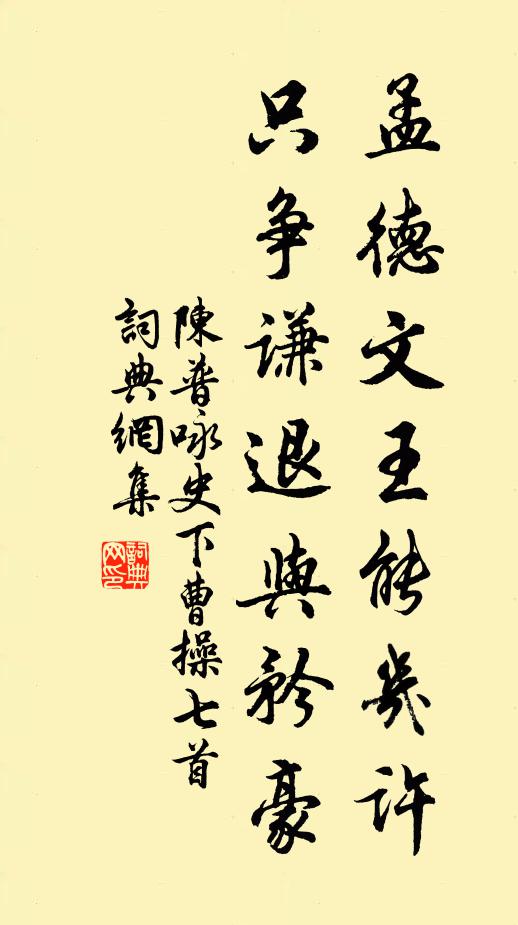 孟德文王能幾許
只争谦退與矜豪
陳普咏史下曹操七首
詞典網集
詞典网印